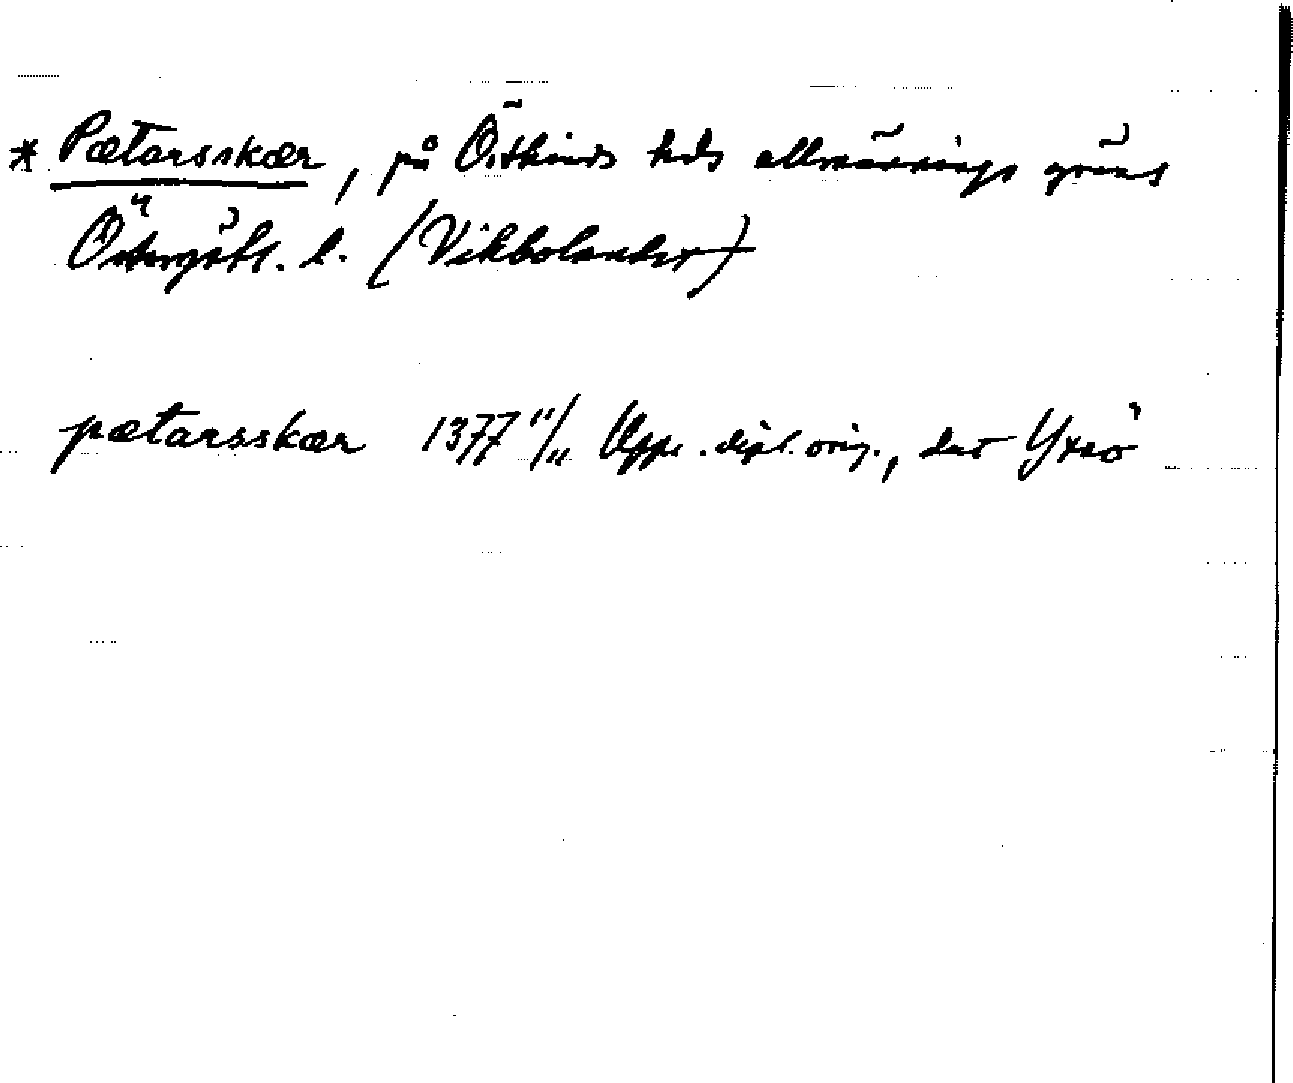 * Pætarsskær, på Östkinds hds allmännings gräns
Östergötl. l. (Vikbolandet)
pætarsskær 1377 11/11 Uppg. dipl. orig., dat Yxnö